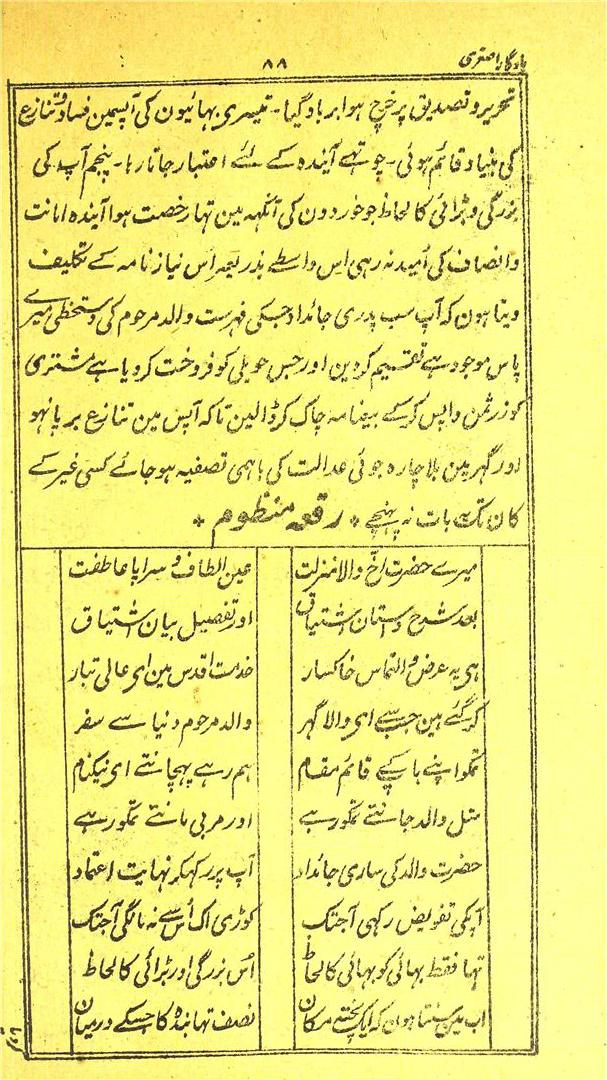 یادگار اصغری
۸۸
تحریر و تصدیق پر خرچ ہوا برباد گیا۔ تیسری بہائیون کی آپسمین فساد و تنازع
کی بنیاد قائم ہوئی۔ چوتہے آیندہ کے لئے اعتبار جاتا رہا۔ پنجم آپ کی
بزرگی و بڑائی کا لحاظ جو خوردون کی آنکہہ مین تہا رخصت ہوا آیندہ امانت
و انصاف کی اُمید نہ رہی اس واسطے بذریعہ اس نیاز نامہ کے تکلیف
دیتا ہون کہ آپ سب پدری جائداد جسکی فہرست والد مرحوم کی دستخطی میرے
پاس موجود ہے تقسیم کر دین اور جس حویلی کو فروخت کر دیا ہے مشتری
کو زر ثمن واپس کر کے بیعنامہ چاک کر ڈالین تاکہ آپس مین تنازع برپا نہو
اور گہر مین بلا چارہ جوئی عدالت کی باہمی تصفیہ ہو جائے کسی غیر کے
کان تک بات نہ پہنچے * رقعہ منظوم *
میرے حضرت اخ والا منزلت عین الطاف و سراپا عاطفت
بعد شرح داستان اشتیاق اور تفصیل بیان اشتیاق
ہی یہ عرض و التماس خاکسار خدمت اقدس مین ای عالی تبار
کر گئے ہین جب سے ای والا گہر والد مرحوم دنیا سے سفر
تمکو اپنے باپ کے قائم مقام ہم رہے پہچانتے ای نیکنام
مثل والد جانتے تمکو رہے اور مربی مانتے تمکو رہے
حضرت والد کی ساری جائداد آپ پر رکہکر نہایت اعتماد
آپکی تفویض رکہی آجتک کوڑی اک اُس سے نہ مانگی آجتک
تہا فقط بہائی کو بہائی کا لحاظ اُس بزرگی اور بڑائی کا لحاظ
اب مین سنتا ہون کہ ایک پختہ مکان نصف تہا بندہ کا جسکے درمیان